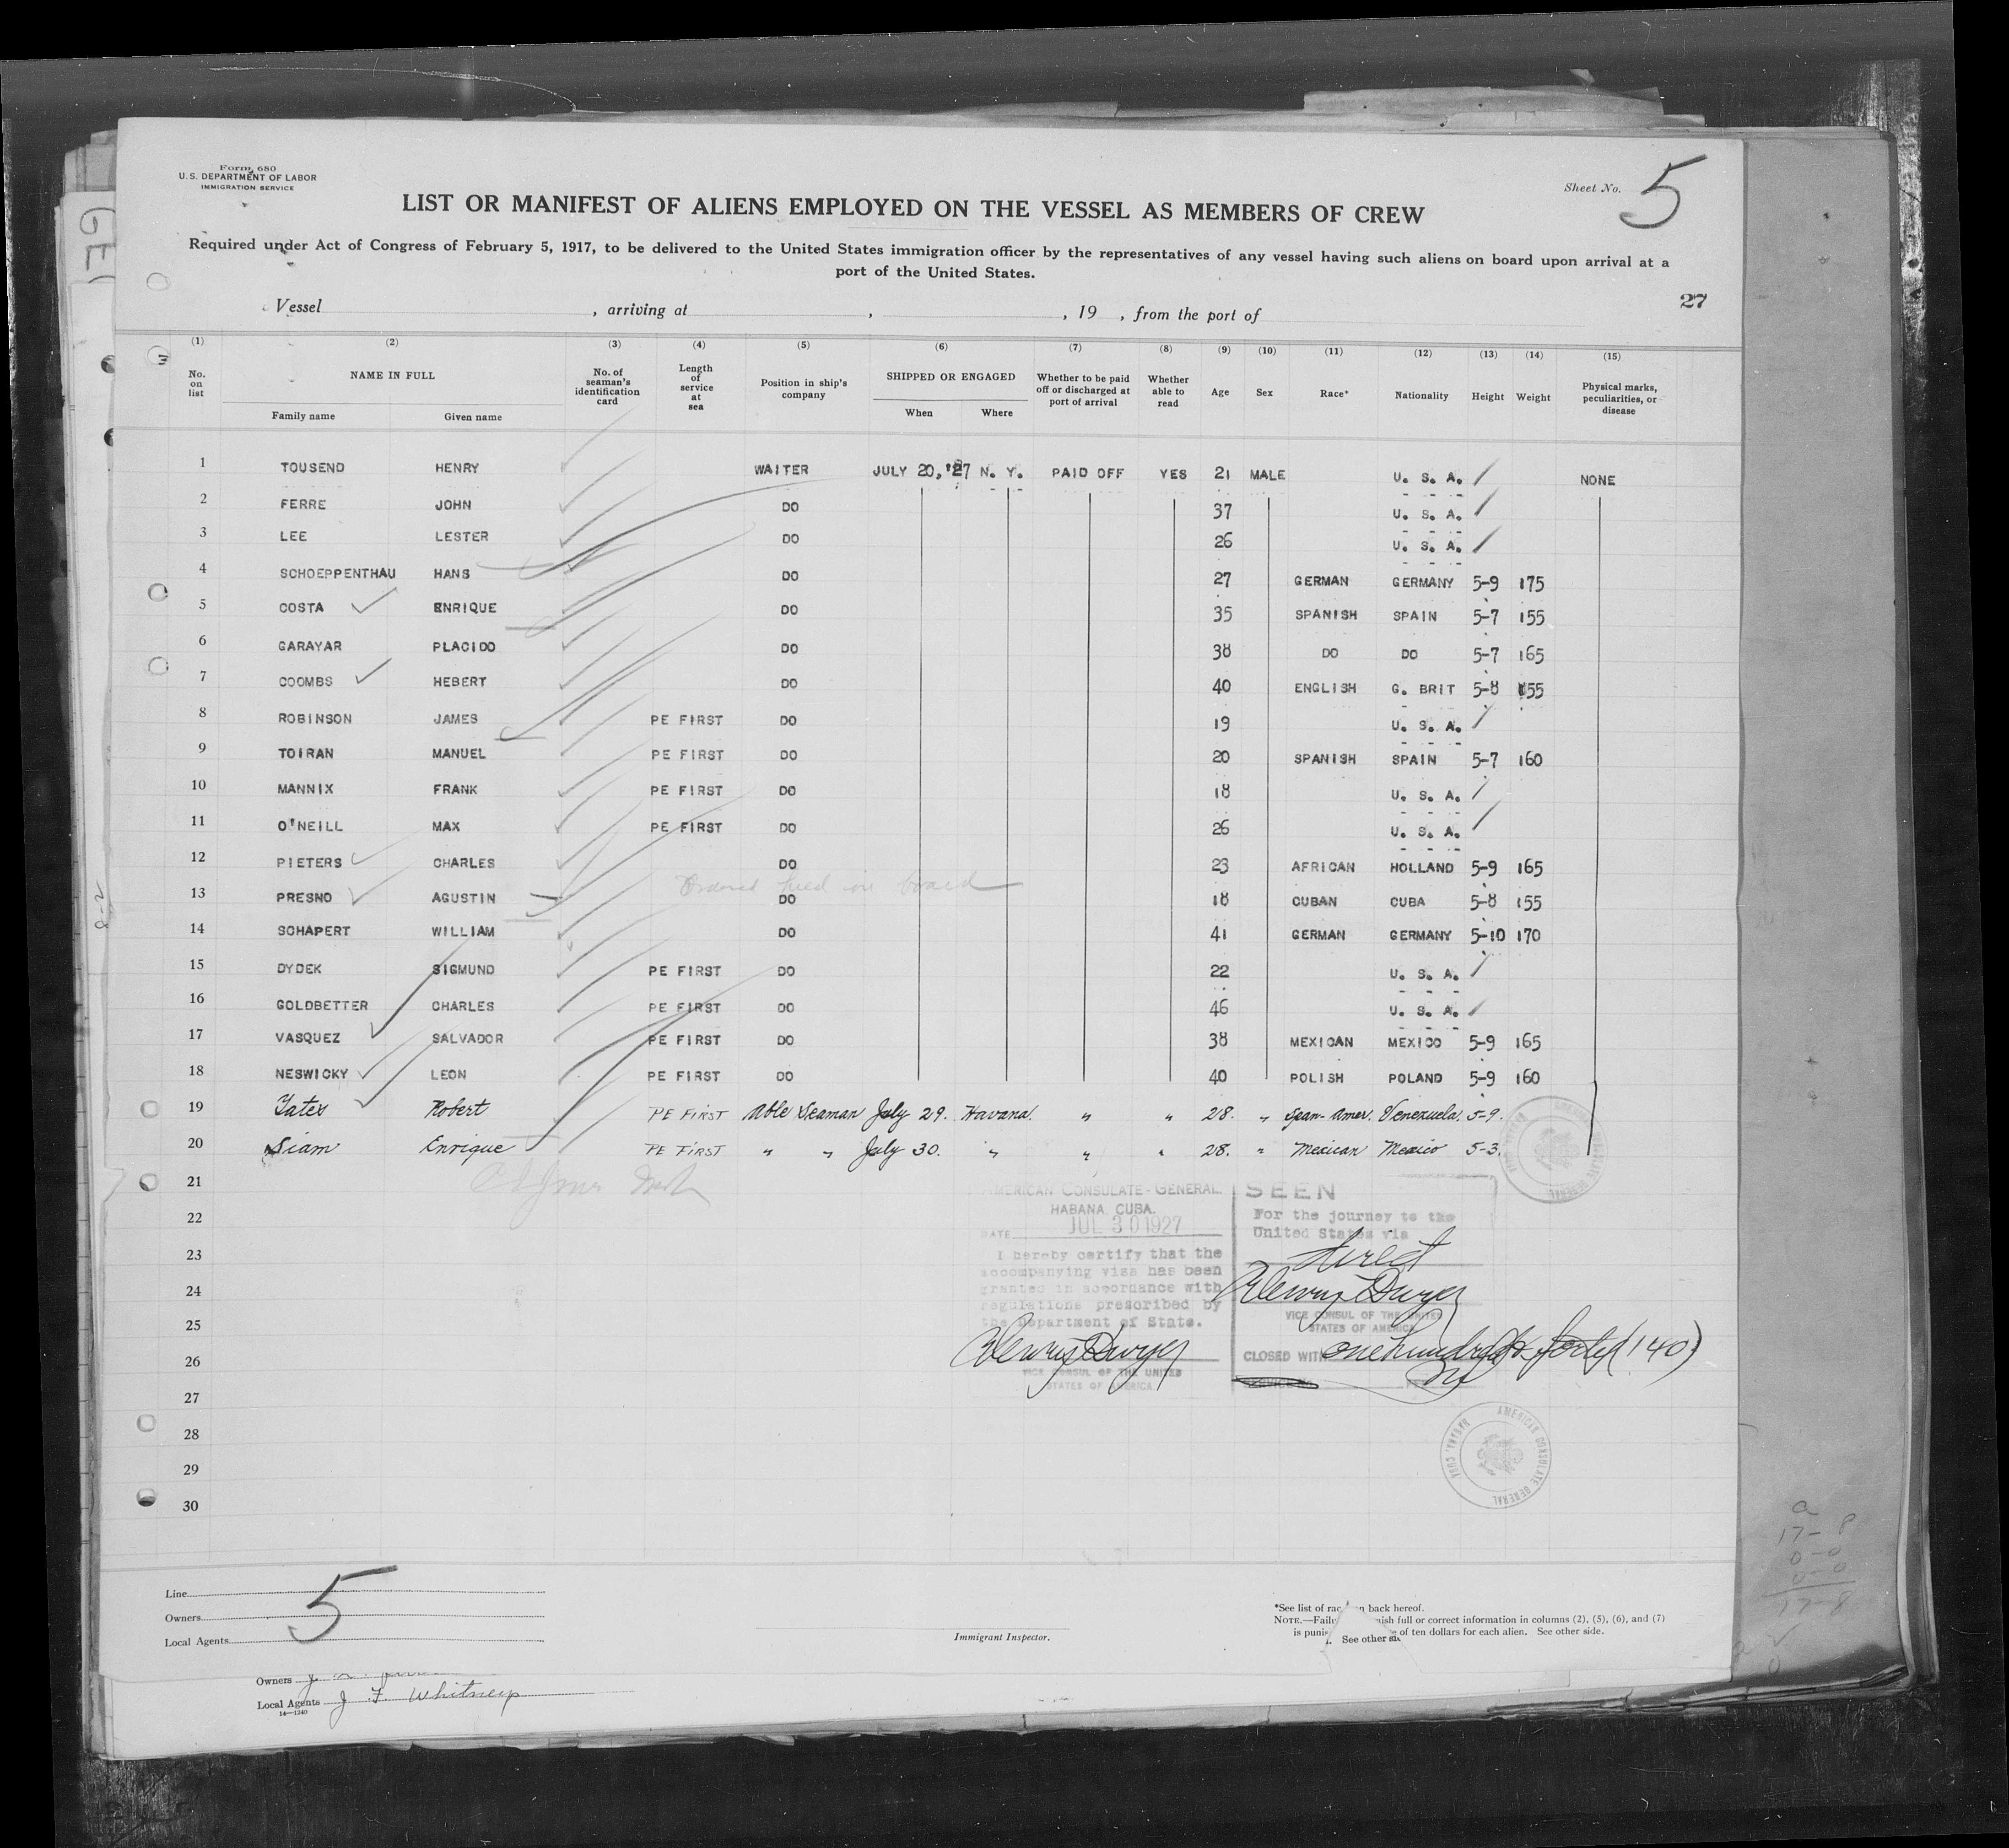 Form 680
U. S. DEPARTMENT OF LABOR
IMMIGRATION SERVICE
Sheet No. 5
LIST OR MANIFEST OF ALIENS EMPLOYED ON THE VESSEL AS MEMBERS OF CREW
Required under Act of Congress of February 5, 1917, to be delivered to the United States immigration officer by the representatives of any vessel having such aliens on board upon arrival at a
port of the United States.
27
Vessel , arriving at , , 19 , from the port of
(1) (2) (3) (4) (5) (6) (7) (8) (9) (10) (11) (12) (13) (14) (15)
No. on list NAME IN FULL No. of seaman's identification card Length of service at sea Position in ship's company SHIPPED OR ENGAGED Whether to be paid off or discharged at port of arrival Whether able to read Age Sex Race* Nationality Height Weight Physical marks, peculiarities, or disease
Family name Given name When Where
1 TOUSEND HENRY WAITER JULY 20, '27 N. Y. PAID OFF YES 21 MALE U. S. A. NONE
2 FERRE JOHN DO 37 U. S. A.
3 LEE LESTER DO 26 U. S. A.
4 SCHOEPPENTHAU HANS DO 27 GERMAN GERMANY 5-9 175
5 COSTA ENRIQUE DO 35 SPANISH SPAIN 5-7 155
6 GARAYAR PLACIDO DO 38 DO DO 5-7 165
7 COOMBS HEBERT DO 40 ENGLISH G. BRIT 5-8 155
8 ROBINSON JAMES PE FIRST DO 19 U. S. A.
9 TOIRAN MANUEL PE FIRST DO 20 SPANISH SPAIN 5-7 160
10 MANNIX FRANK PE FIRST DO 18 U. S. A.
11 O'NEILL MAX PE FIRST DO 26 U. S. A.
12 PIETERS CHARLES DO 23 AFRICAN HOLLAND 5-9 165
Ordered held on board
13 PRESNO AGUSTIN DO 18 CUBAN CUBA 5-8 155
14 SCHAPERT WILLIAM DO 41 GERMAN GERMANY 5-10 170
15 DYDEK SIGMUND PE FIRST DO 22 U. S. A.
16 GOLDBETTER CHARLES PE FIRST DO 46 U. S. A.
17 VASQUEZ SALVADOR PE FIRST DO 38 MEXICAN MEXICO 5-9 165
18 NESWICKY LEON PE FIRST DO 40 POLISH POLAND 5-9 160
19 Yates Robert PE FIRST Able Seaman July 29. Havana. " " 28. " Span-Amer. Venezuela. 5-9.
20 Siam Enrique PE FIRST " " July 30. " " " 28. " Mexican Mexico 5-3.
21
22
23
24
25
26
27
28
29
30
AMERICAN CONSULATE-GENERAL
HABANA, CUBA.
DATE JUL 30 1927
I hereby certify that the
accompanying visa has been
granted in accordance with
regulations prescribed by
the Department of State.
VICE CONSUL OF THE UNITED
STATES OF AMERICA
SEEN
For the journey to the
United States via
direct
VICE CONSUL OF THE UNITED
STATES OF AMERICA
CLOSED WITH one hundred & forty (140)
AMERICAN CONSULATE GENERAL
HABANA, CUBA
Line
Owners
Local Agents
5
Immigrant Inspector.
*See list of rac n back hereof.
NOTE.—Failu nish full or correct information in columns (2), (5), (6), and (7)
is punis of ten dollars for each alien. See other side.
See other si
Owners
Local Agents J F. Whitney
14—1240
17- 8
0-0
0-0
17-8